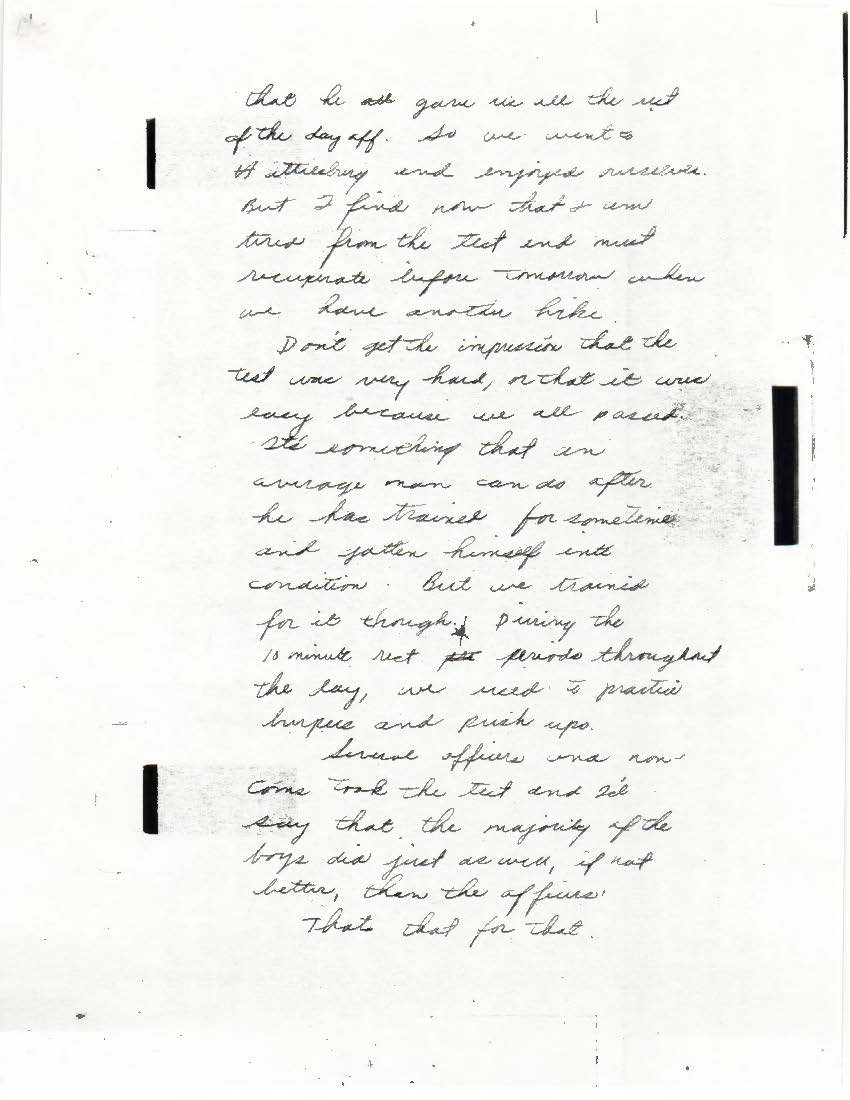 that he all gave us all the rest
of the day off. So we went to
Hattiesburg and enjoyed ourselves.
But I find now that I am
tired from the test and must
recuperate before tomorrow when
we have another hike.
Don't get the impression that the
test was very hard, or that it was
easy because we all passed.
It's something that an
average man can do after
he has trained for sometime
and gotten himself into
condition. But we trained
for it though. During the
10 minute rest periods throughout
the day, we used to practice
burpees and push ups.
Several officers and non-
coms took the test and I'd
say that the majority of the
boys did just as well, if not
better, than the officers.
Thats that for that.